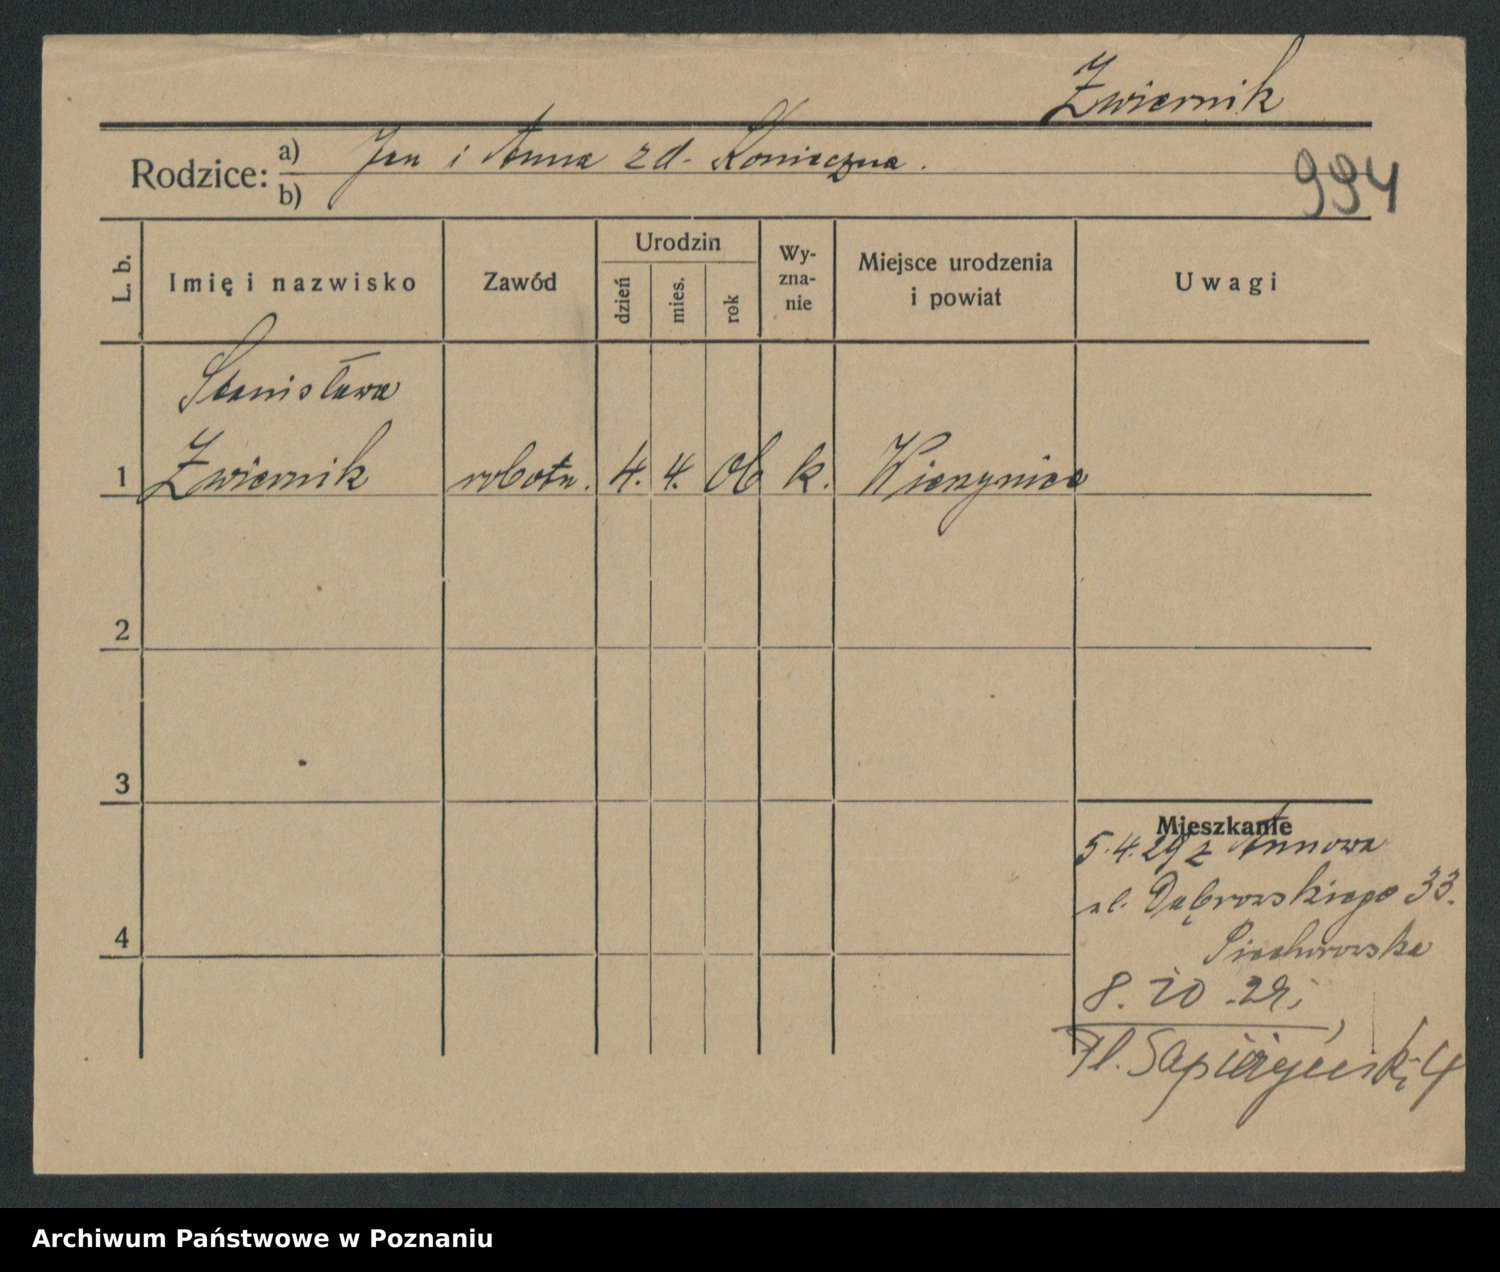 Zwiernik
Rodzice: a) Jan i Anna zd. Konieczna.
b)
994
L. b.
Imię i nazwisko
Zawód
Urodzin
dzień
mies.
rok
Wy-
zna-
nie
Miejsce urodzenia
i powiat
Uwagi
Stanisława
1 Zwiernik robotn. 4. 4. 06 k. Wierzynice
2
3
4
Mieszkanie
5.4.29 z Annowa
ul. Dąbrowskiego 33.
Piechowska
8. 10. 29.
Pl. Sapieżyński 4
Archiwum Państwowe w Poznaniu